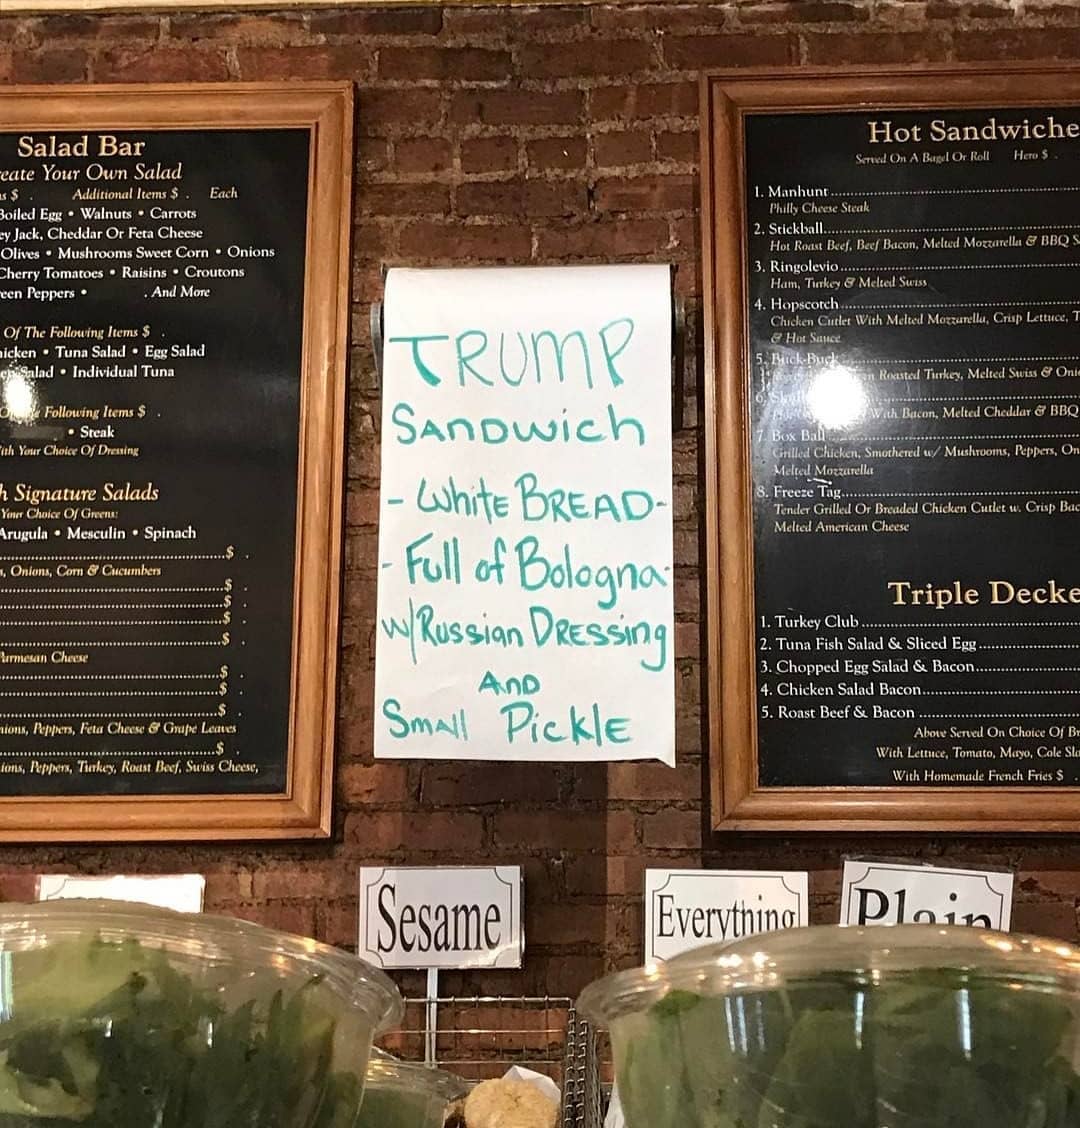 Salad Bar
eate Your Own Salad
s $ . Additional Items $ . Each
Boiled Egg • Walnuts • Carrots
ey Jack, Cheddar Or Feta Cheese
Olives • Mushrooms Sweet Corn • Onions
Cherry Tomatoes • Raisins • Croutons
een Peppers • . And More
Of The Following Items $ .
icken • Tuna Salad • Egg Salad
Salad • Individual Tuna
Following Items $ .
• Steak
ith Your Choice Of Dressing
h Signature Salads
Your Choice Of Greens:
Arugula • Mesculin • Spinach
$ .
s, Onions, Corn & Cucumbers
$ .
$ .
$ .
$ .
Parmesan Cheese
$ .
$ .
$ .
nions, Peppers, Feta Cheese & Grape Leaves
$ .
ions, Peppers, Turkey, Roast Beef, Swiss Cheese,
TRUMP
SANDWich
- White BREAD -
- Full of Bologna -
w/ Russian DRESSing
AND
Small Pickle
Hot Sandwiche
Served On A Bagel Or Roll Hero $ .
1. Manhunt
Philly Cheese Steak
2. Stickball
Hot Roast Beef, Beef Bacon, Melted Mozzarella & BBQ S
3. Ringolevio
Ham, Turkey & Melted Swiss
4. Hopscotch
Chicken Cutlet With Melted Mozzarella, Crisp Lettuce, T
& Hot Sauce
5. Buck-Buck
n Roasted Turkey, Melted Swiss & Oni
6.
With Bacon, Melted Cheddar & BBQ
7. Box Ball
Grilled Chicken, Smothered w/ Mushrooms, Peppers, On
Melted Mozzarella
8. Freeze Tag
Tender Grilled Or Breaded Chicken Cutlet w. Crisp Bac
Melted American Cheese
Triple Decke
1. Turkey Club
2. Tuna Fish Salad & Sliced Egg
3. Chopped Egg Salad & Bacon
4. Chicken Salad Bacon
5. Roast Beef & Bacon
Above Served On Choice Of Br
With Lettuce, Tomato, Mayo, Cole Sla
With Homemade French Fries $ .
Sesame
Everything
Plain